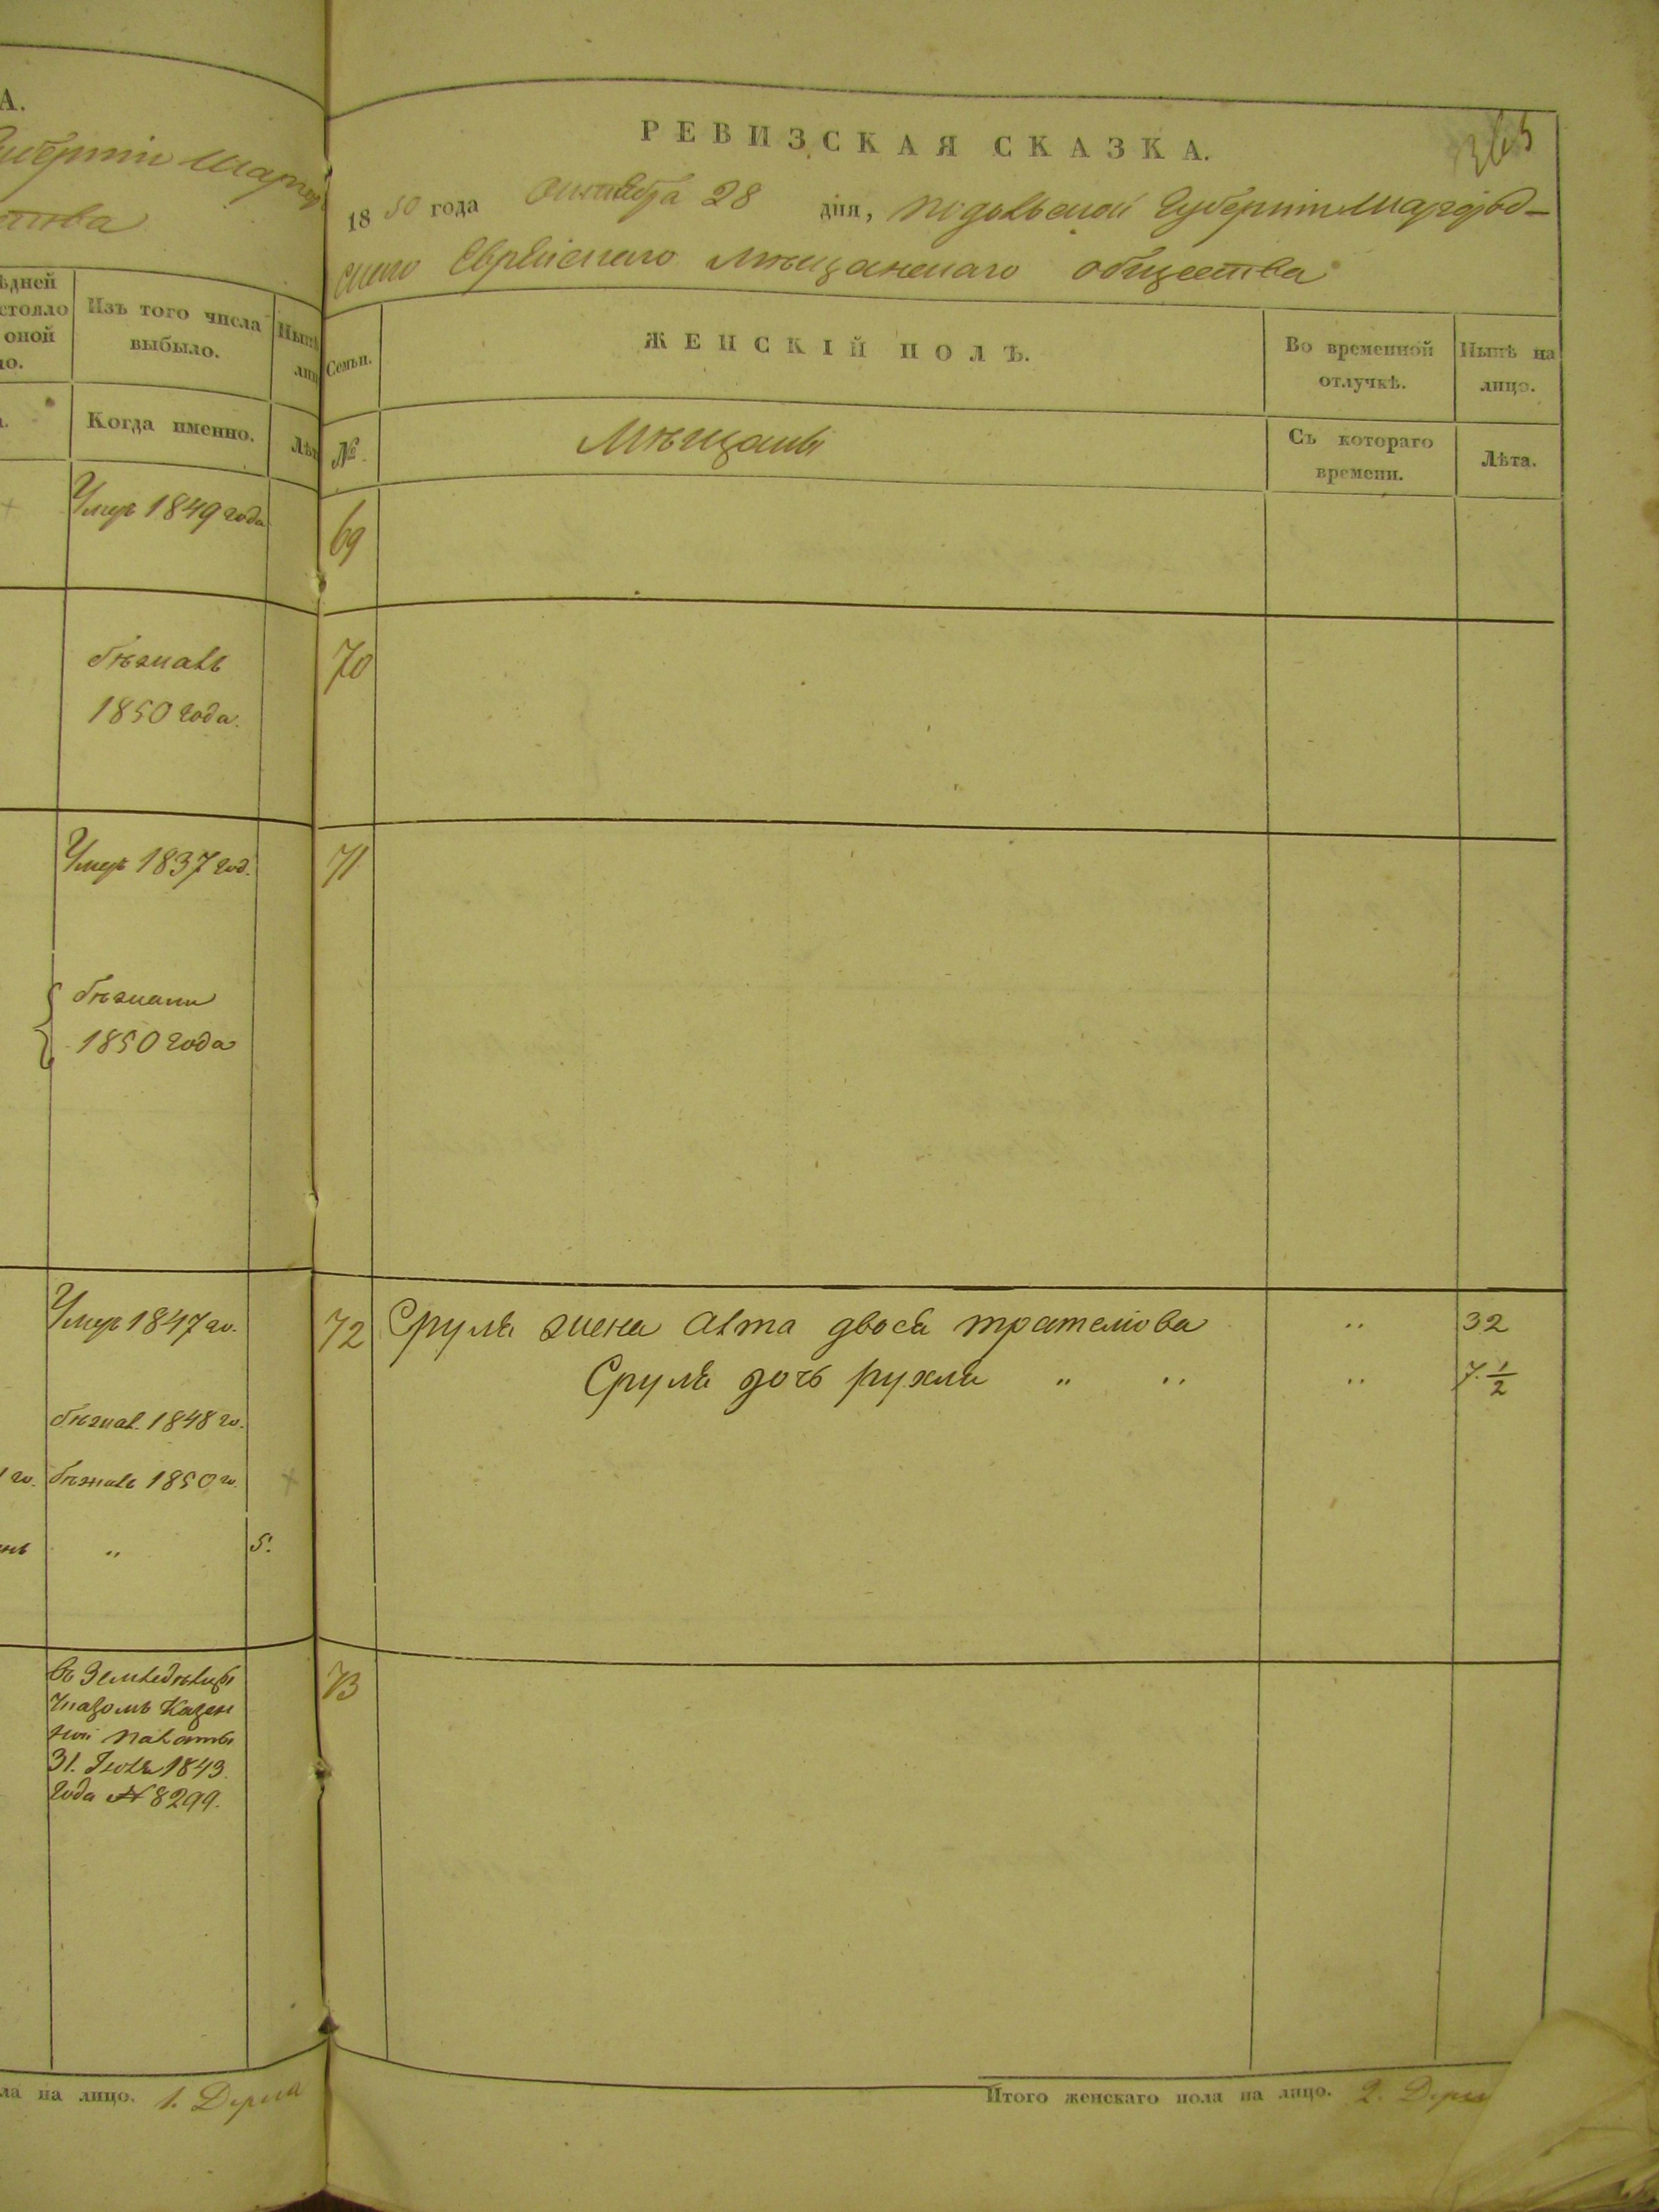 А.
ства
ѣдней
стояло
оной
ло.
Изъ того числа
выбыло.
Нынѣ
лиц
Когда именно.
Лѣт
Умеръ 1849 года
бѣжалъ
1850 года.
Умеръ 1837 год.
бѣжали
1850 года
Умеръ 1847 го.
бѣжал. 1848 го.
го. бѣжалъ 1850 го.
" 5.
въ Земледѣльцы
Указомъ Казен
ной палаты
31. Іюля 1843.
года № 8299.
ла на лицо. 1. Душа
365
РЕВИЗСКАЯ СКАЗКА.
1850 года Октября 28 дня, Подольской Губерніи Шаргород-
скаго Еврейскаго мѣщанскаго общества
Семьи.
ЖЕНСКІЙ ПОЛЪ.
Во временной
отлучкѣ.
Нынѣ на
лицо.
№
Мѣщаны
Съ котораго
времени.
Лѣта.
69
70
71
72 Сруля жена Алта двося " 32
Сруля дочь рухля " " " 7 ½
73
Итого женскаго пола на лицо. 2.